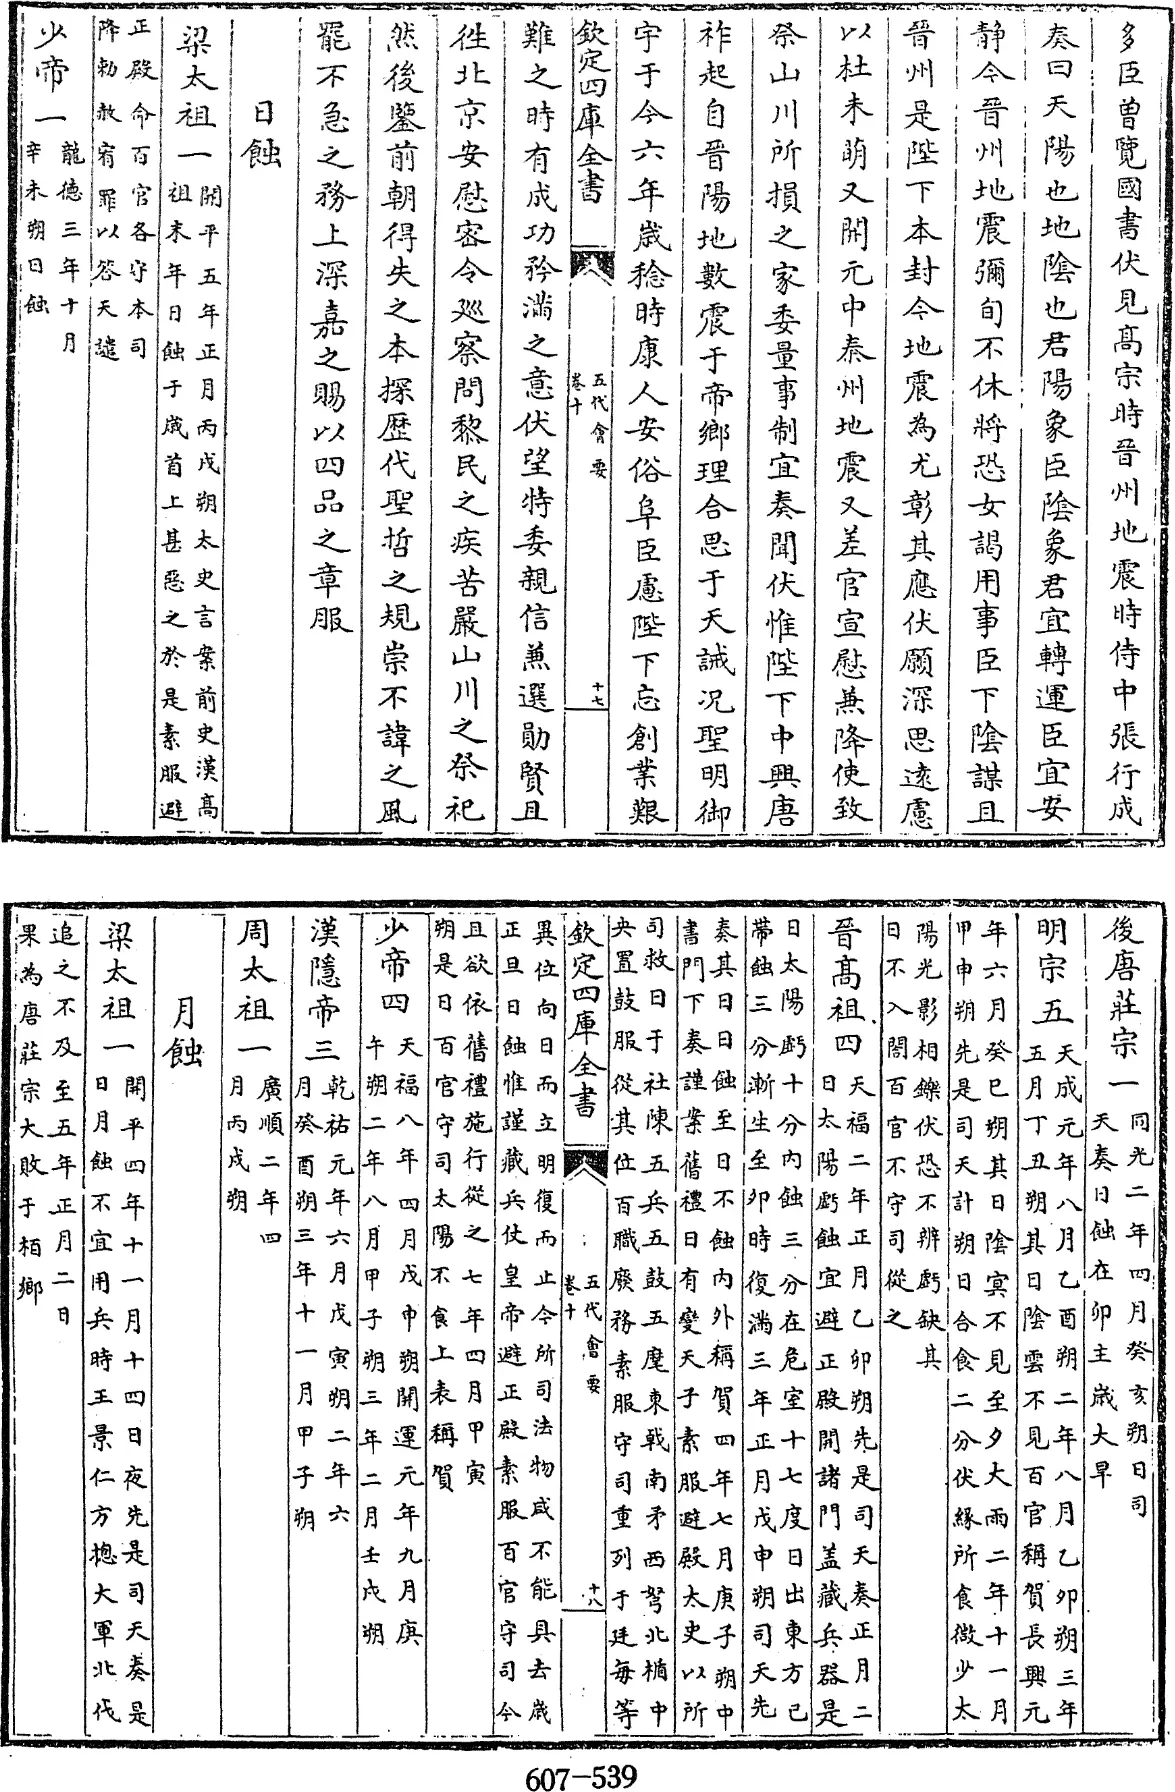 多臣曽覽國書伏見髙宗時晉州地震時侍中張行成
奏曰天陽也地陰也君陽象臣陰象君宜轉運臣宜安
静今晉州地震彌旬不休將恐女謁用事臣下陰謀且
晉州是陛下本封今地震為尤彰其應伏願深思逺慮
以杜未萌又開元中秦州地震又差官宣慰兼降使致
祭山川所損之家委量事制宜奏聞伏惟陛下中興唐
祚起自晉陽地數震于帝鄉理合思于天誡况聖明御
宇于今六年歲稔時康人安俗阜臣慮陛下忘創業艱
欽定四庫全書
五代會要
卷十
十七
難之時有成功矜滿之意伏望特委親信兼選勛賢且
徃北京安慰宻令廵察問黎民之疾苦嚴山川之祭祀
然後鑒前朝得失之本探歴代聖哲之規崇不諱之風
罷不急之務上深嘉之賜以四品之章服
日蝕
梁太祖一
開平五年正月丙戌朔太史言案前史漢髙
祖末年日蝕于歲首上甚惡之於是素服避
正殿命百官各守本司
降勅赦宥罪以答天譴
少帝一
龍德三年十月
辛未朔日蝕
後唐莊宗一
同光二年四月癸亥朔日司
天奏日蝕在卯主歲大旱
明宗五
天成元年八月乙酉朔二年八月乙卯朔三年
五月丁丑朔其日陰雲不見百官稱賀長興元
年六月癸巳朔其日陰㝠不見至夕大雨二年十一月
甲申朔先是司天計朔日合食二分伏緣所食微少太
陽光影相鑠伏恐不辨虧缺其
日不入閤百官不守司從之
晉髙祖四
天福二年正月乙卯朔先是司天奏正月二
日太陽虧蝕宜避正殿開諸門盖藏兵器是
日太陽虧十分内蝕三分在危室十七度日出東方已
帶蝕三分漸生至卯時復滿三年正月戊申朔司天先
奏其日日蝕至日不蝕内外稱賀四年七月庚子朔中
書門下奏謹案舊禮日有變天子素服避殿太史以所
司救日于社陳五兵五鼓五麾東戟南矛西弩北楯中
央置鼓服從其位百職廢務素服守司重列于廷每等
欽定四庫全書
五代會要
卷十
十八
異位向日而立明復而止今所司法物咸不能具去歲
正旦日蝕惟謹藏兵仗皇帝避正殿素服百官守司今
且欲依舊禮施行從之七年四月甲寅
朔是日百官守司太陽不食上表稱賀
少帝四
天福八年四月戊申朔開運元年九月庚
午朔二年八月甲子朔三年二月壬戌朔
漢隱帝三
乾祐元年六月戊寅朔二年六
月癸酉朔三年十一月甲子朔
周太祖一
廣順二年四
月丙戌朔
月蝕
梁太祖一
開平四年十一月十四日夜先是司天奏是
日月蝕不宜用兵時王景仁方揔大軍北伐
追之不及至五年正月二日
果為唐莊宗大敗于栢鄉
607-539